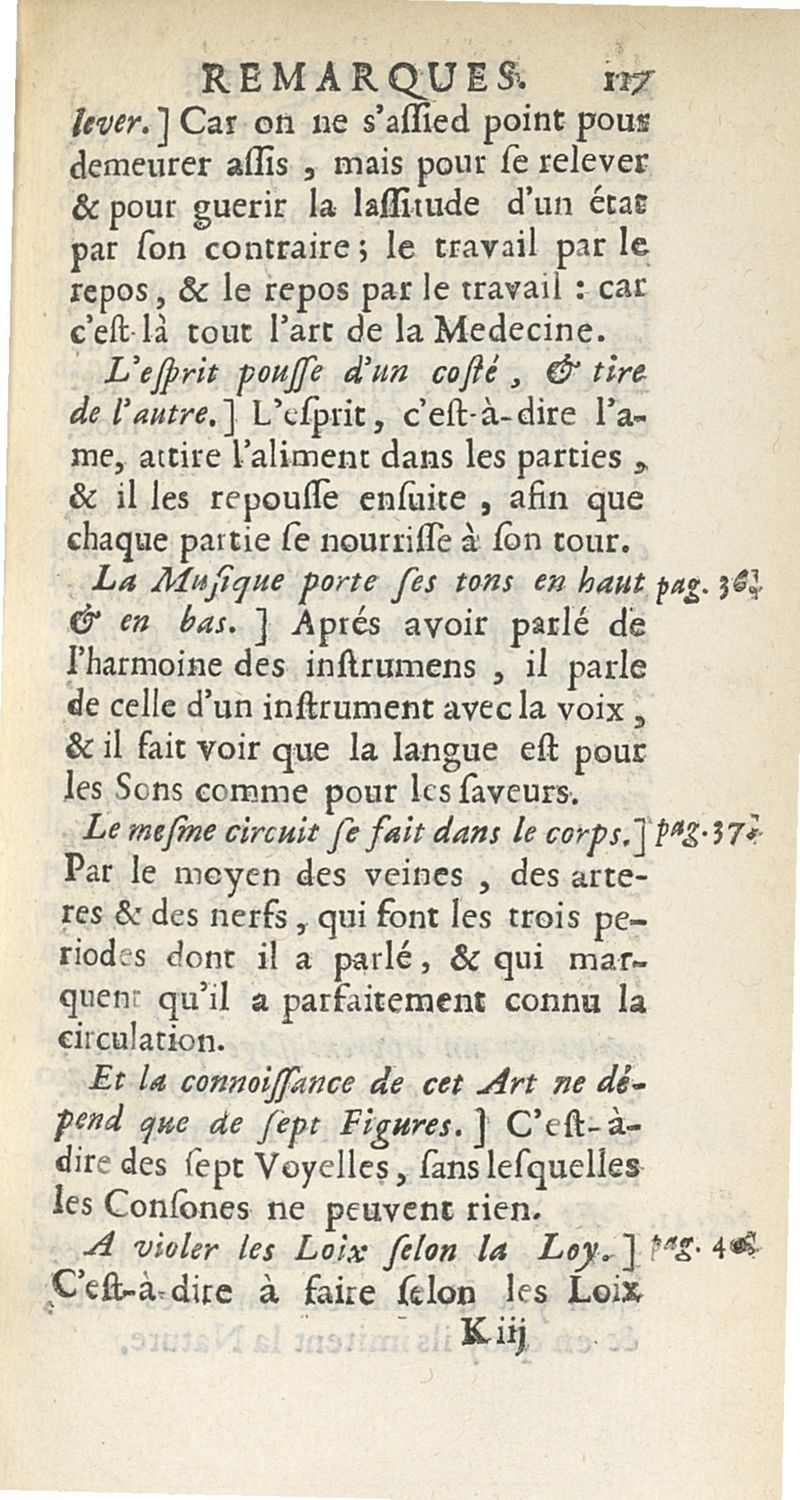 REMARQUES. 117
lever.] Car on ne s'aſſied point pour
demeurer aſſis, mais pour ſe relever
& pour guerir la laſſitude d'un état
par ſon contraire; le travail par le
repos, & le repos par le travail : car
c'eſt-là tout l'art de la Medecine.
L'eſprit pouſſe d'un coſté, & tire
de l'autre.] L'eſprit, c'eſt-à-dire l'a-
me, attire l'aliment dans les parties,
& il les repouſſe enſuite, afin que
chaque partie ſe nourriſſe à ſon tour.
La Muſique porte ſes tons en haut pag. 36.
& en bas.] Aprés avoir parlé de
l'harmoine des inſtrumens, il parle
de celle d'un inſtrument avec la voix,
& il fait voir que la langue eſt pour
les Sons comme pour les ſaveurs.
Le meſme circuit ſe fait dans le corps.] pag. 37.
Par le moyen des veines, des arte-
res & des nerfs, qui ſont les trois pe-
riodes dont il a parlé, & qui mar-
quent qu'il a parfaitement connu la
circulation.
Et la connoiſſance de cet Art ne dé-
pend que de ſept Figures.] C'eſt-à-
dire des ſept Voyelles, ſans leſquelles
les Conſones ne peuvent rien.
A violer les Loix ſelon la Loy.] pag.
C'eſt-à-dire à faire ſelon les Loix
K iij